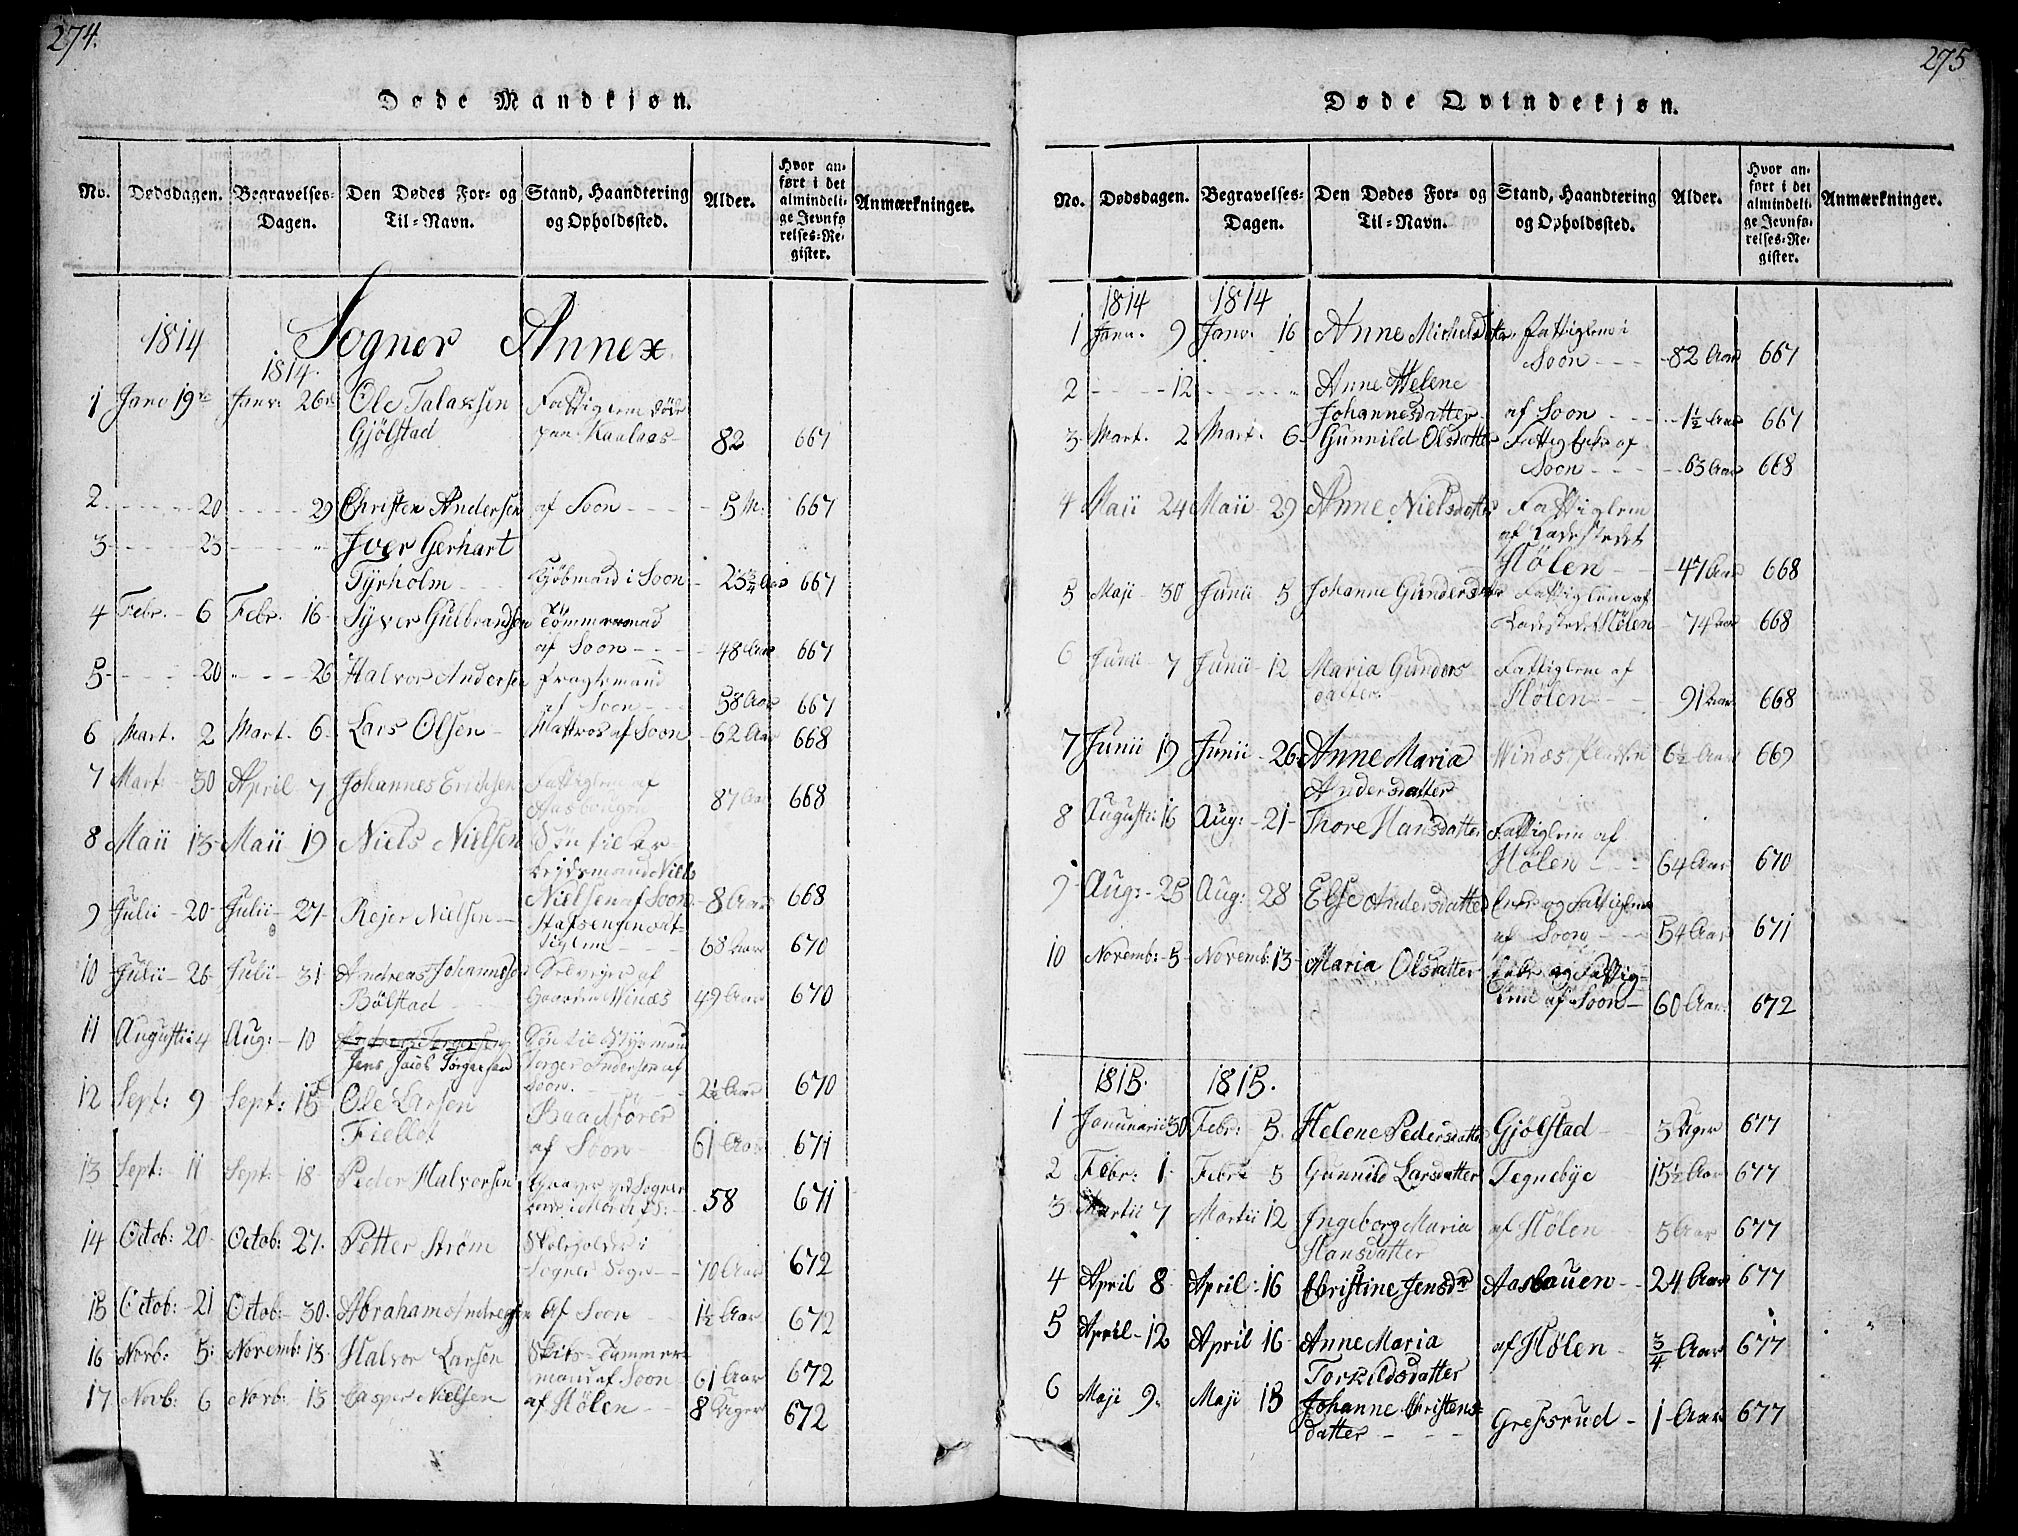 274.
Døde Mandkjøn.
No. Dødsdagen. Begravelses-Dagen. Den Dødes For- og Til-Navn. Stand, Haandtering og Opholdssted. Alder. Hvor anført i det almindelige Jevnførelses-Register. Anmærkninger.
1814 Sogner Annex
1814.
1 Janv 19de Janv: 26de Ole Talaksen Fattiglem døde
Gjölstad paa Kaalaas- 82 667
2 - - - 20 - - - 29 Christen Andersen af Soon - - - 5 M. 667
3 - - - 23 - - - " Iver Gerhart
Tyrholm - Kjöbmand i Soon - 23 3/4 Aar 667
4 Febr. - 6 Febr. 16 Syver Gulbrandsen Tömmermand
af Soon - - - 48 Aar 667
5 - - - 20 " - - - 26 Halvor Andersen Fragtemand
af Soon - - - 58 Aar 667
6 Mart. 2 Mart. 6 Lars Olsen - Mattros af Soon - 62 Aar 668
7 Mart - 30 April 7 Johannes Erichsen Fattiglem af
87 Aar 668
8 Maii 13 Maii 19 Niels Nielsen Sön til
Niels
Nielsen af Soon - 8 Aar 668
9 Julii - 20 Julii - 27 Rejer Nielsen -
68 Aar 670
10 Julii - 26 Julii - 31 Andreas Johannesen Selvejer af
Bölstad Gaarden Winæs 49 Aar 670
11 Augusti: 4 Aug: - 10
Jens Jacob Törgersen Torger Andersen af
Soon. - 2 1/2 Aar 670
12 Sept: 9 Sept: 15 Ole Larsen Baadförer
af Soon 61 Aar 671
13 Sept: 11 Sept: 18 Peder Halvorsen Graver ved Sogner
58 671
14 Octob: 20 Octob: 27. Petter Ström Skoleholder i
Sogner Sogn - 70 Aar 672
15 Octob: 21 Octob: 30. Abraham af Soon - 1 1/2 Aar 672
16 Novb: 5 Novemb: 13 Halvor Larsen Skibs-Tømmer-
mand af Soon 61 Aar 672
17 Novb: 6 Novb: 13 Casper Nielsen af Hölen - 8 Uger 672
275
Døde Qvindekjøn.
No. Dødsdagen. Begravelses-Dagen. Den Dødes For- og Til-Navn. Stand, Haandtering og Opholdssted. Alder. Hvor anført i det almindelige Jevnførelses-Register. Anmærkninger.
1814 1814
1 Janv. 9 Janv. 16 Anne Michelsdatter Fattiglem i
Soon - - - 82 Aar 667
2 - - - 12 - - - " Anne Helene
Johannesdatter af Soon - - - 1 1/2 Aar 667
3 Mart. 2 Mart. 6 Gunnild Olsdatter Fattig Enke af
Soon - - - 63 Aar 668
4 Maii 24 Maii - 29 Anne Nielsdatter Fattiglem
af Ladestedet
Hölen - - 47 Aar 668
5 Maji - 30 Junii 5 Johanne Gundersdatter Fattiglem af
Ladestedet Hölen - 74 Aar 668
6 Junii - 7 Junii - 12 Maria Gunders Fattiglem af
datter. Hölen - - 91 Aar 668
7 Junii 19 Junii - 26 Anne Maria Winæs 6 1/2 Aar 669
Andersdatter
8 Augusti: 16 Aug: - 21 - Thore Hansdatter Fattiglem af
Hölen - - 64 Aar 670
9 Aug: - 25 Aug: 28 Else Andersdatter Enke og Fattiglem
af Soon - 54 Aar 671
10 Novemb: 5 Novemb: 13 Maria Olsdatter Enke og Fattig-
lem af Soon - 60 Aar. 672
1815. 1815.
1 Januarii 30 Febr: 5. Helene Pedersdatter Gjölstad - 3 Uger 677
2 Febr: 1 Febr: 5 Gunnild Larsdatter Tegnebye 15 1/2 Aar 677
3 Martii 7 Martii 12 Ingeborg Maria af Hölen - 5 Aar 677
Hansdatter
4 April 8 April: 16 Christine Jensdr Aasbauen - 24 Aar 677
5 April - 12 April 16 Anne Maria af Hölen - 3/4 Aar 677
Torkildsdatter
6 Maji 9. Maji 15 Johanne Christens-
datter - - - Gressrud - 1 Aar 677